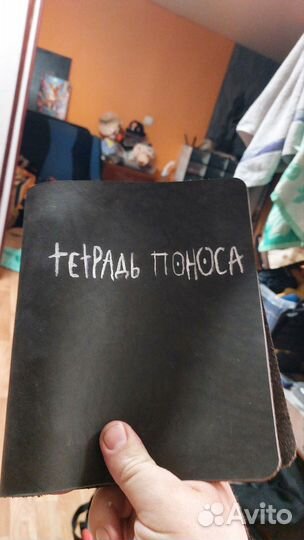 тетрадь поноса
Avito